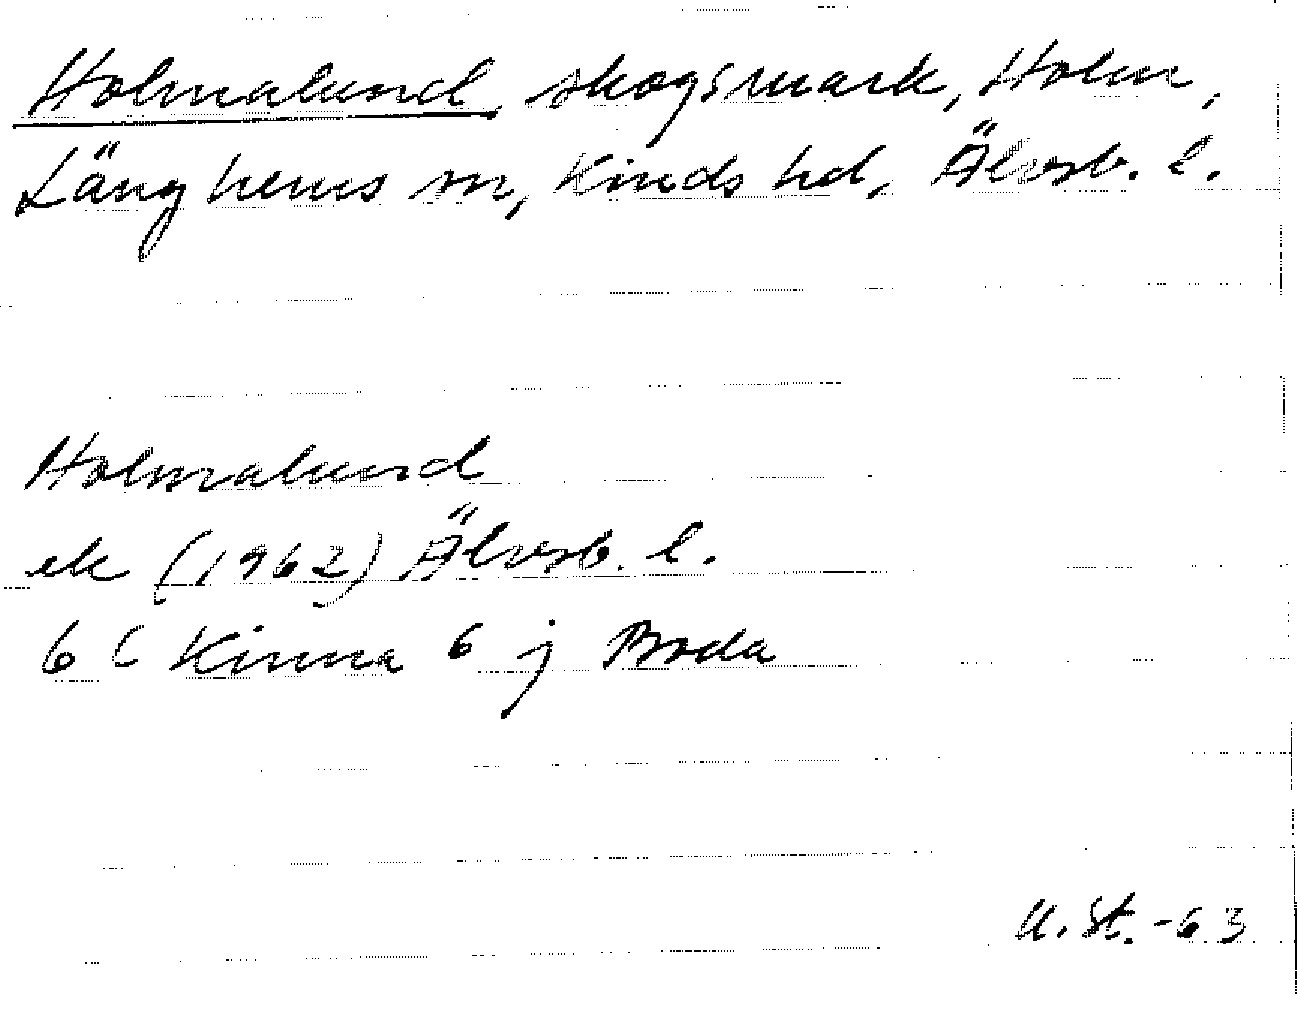 Holmalund, skogsmark, Holm,
Länghems sn, Kinds hd, Älvsb. l.
Holmalund
ek (1962) Älvsb. l.
6 C Kinna 6 j Boda
U. St. -63